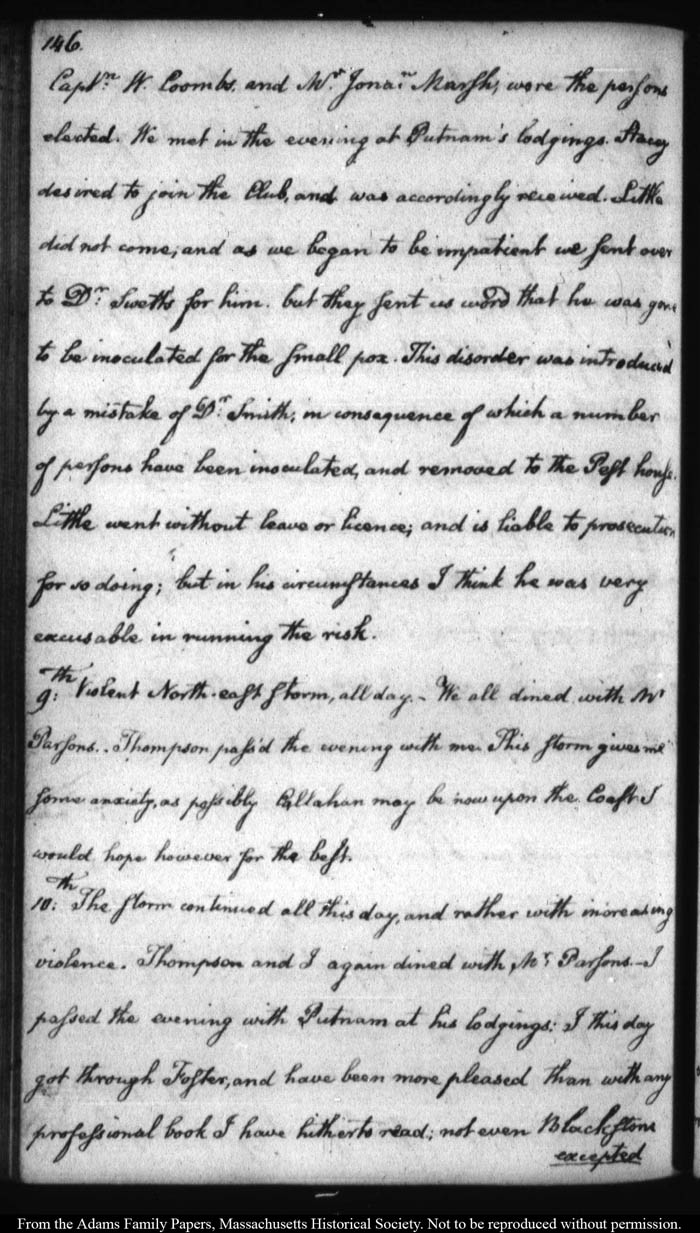 146.
Captn. W. Coombs, and Mr. Jonan. Marsh, were the persons
elected. We met in the evening at Putnam's lodgings. Stacey
desired to join the Club, and was accordingly received. Little
did not come; and as we began to be impatient we sent over
to Dr. Swett's for him. but they sent us word that he was gone
to be inoculated for the small pox. This disorder was introduced
by a mistake of Dr. Smith; in consequence of which a number
of persons have been inoculated, and removed to the Pest house.
Little went without leave or licence; and is liable to prosecution
for so doing; but in his circumstances I think he was very
excusable in running the risk.
9:th Violent North-east storm, all day. - We all dined with Mr
Parsons. Thompson pass'd the evening with me. This storm gives me
some anxiety, as possibly Callahan may be now upon the Coast I
would hope however for the best.
10:th The storm continued all this day, and rather with increasing
violence. Thompson and I again dined with Mr. Parsons. - I
passed the evening with Putnam at his lodgings: I this day
got through Foster, and have been more pleased than with any
professional book I have hitherto read; not even Blackstone
excepted
From the Adams Family Papers, Massachusetts Historical Society. Not to be reproduced without permission.